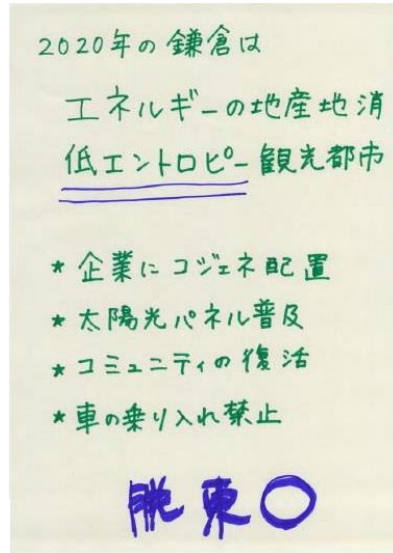 2020年の鎌倉は
エネルギーの地産地消
低エントロピー観光都市
* 企業にコジェネ配置
* 太陽光パネル普及
* コミュニティの復活
* 車の乗り入れ禁止
脱東〇